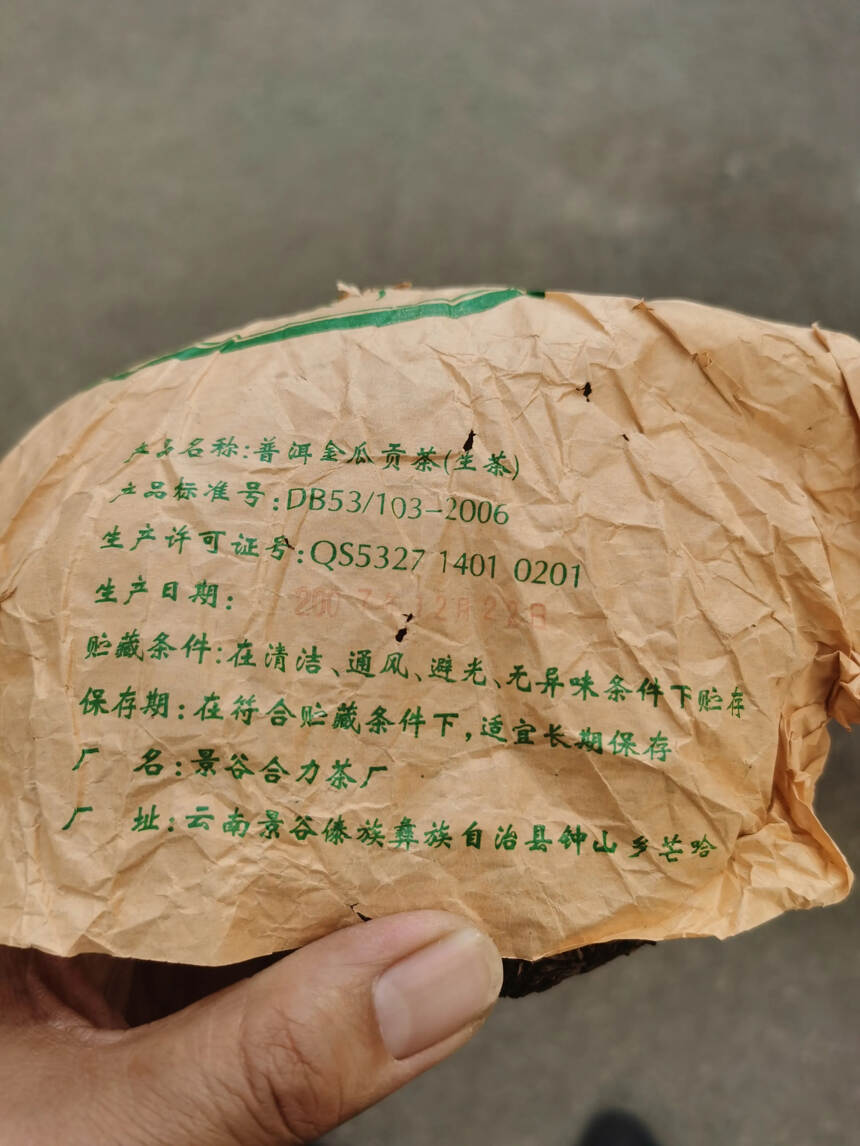 产品名称:普洱金瓜贡茶(生茶)
产品标准号:DB53/103-2006
生产许可证号:QS5327 1401 0201
生产日期: 2007年12月22日
贮藏条件:在清洁、通风、避光、无异味条件下贮存
保存期:在符合贮藏条件下,适宜长期保存
厂 名:景谷合力茶厂
厂 址:云南景谷傣族彝族自治县钟山乡芒哈